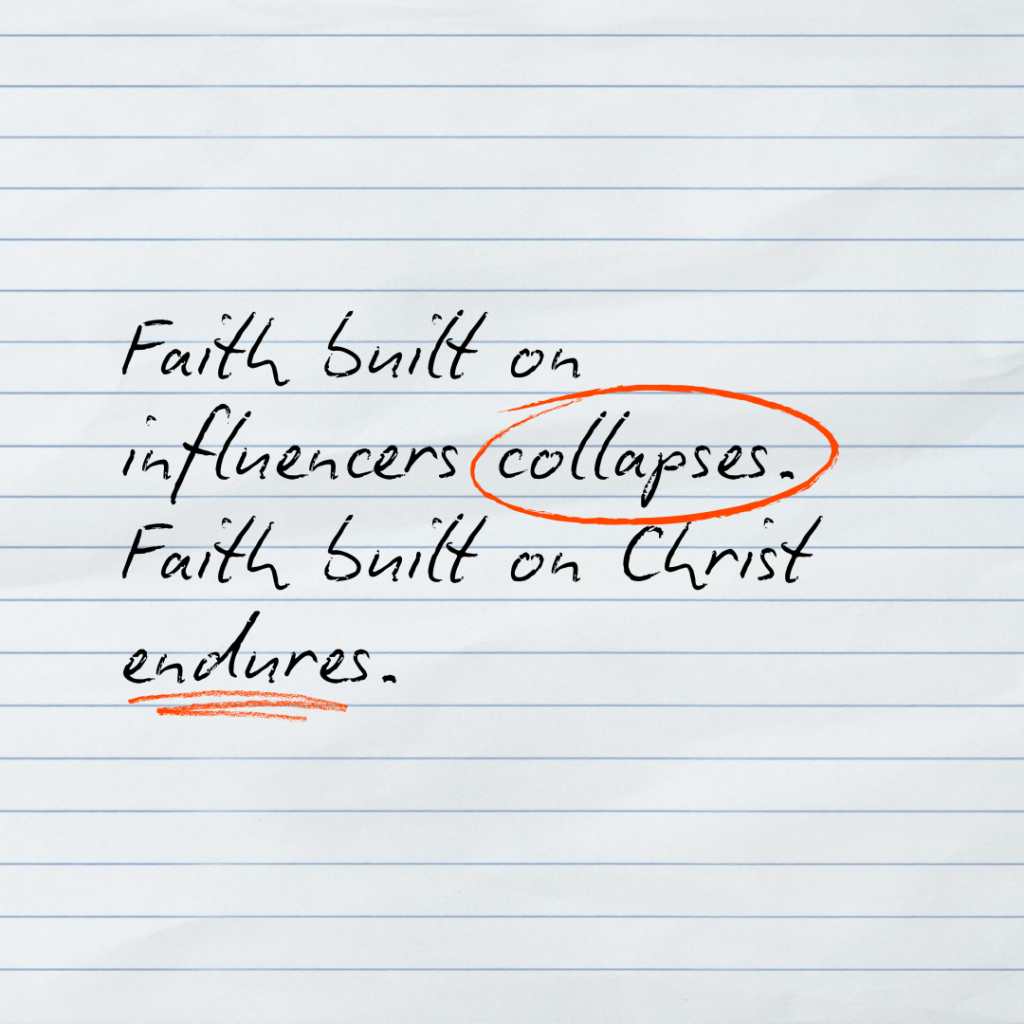 Faith built on
influencers collapses.
Faith built on Christ
endures.